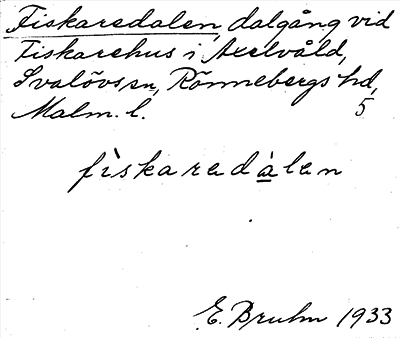 Fiskaredalen, dalgång vid
Fiskarehus i Axelvåld,
Svalövs sn, Rönnebergs hd,
Malm. l. 5
fìskaredàlen
E. Bruhn 1933